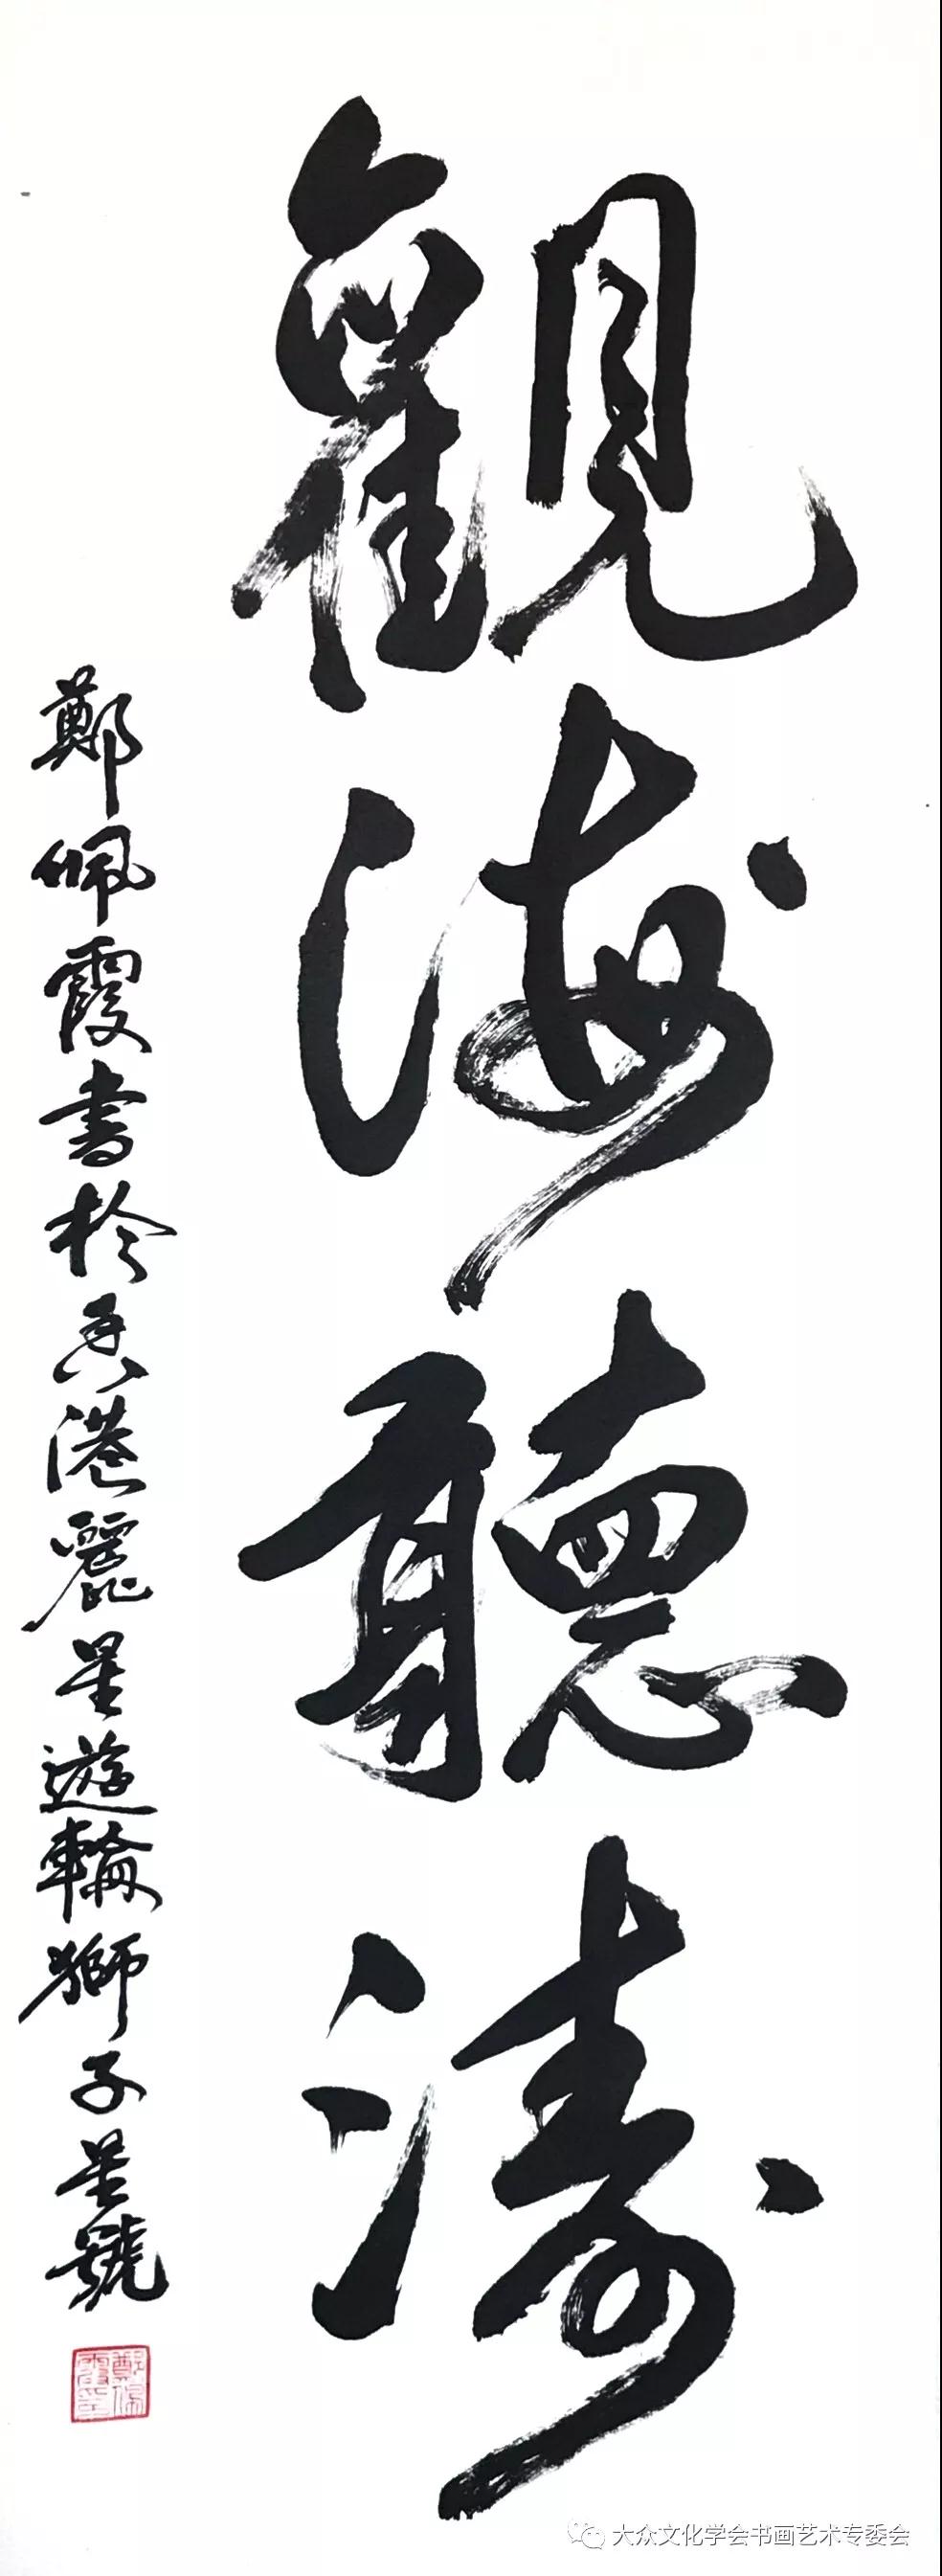 觀海聽濤
鄭佩霞書於香港麗星遊輪獅子星號
鄭佩霞印
大众文化学会书画艺术专委会